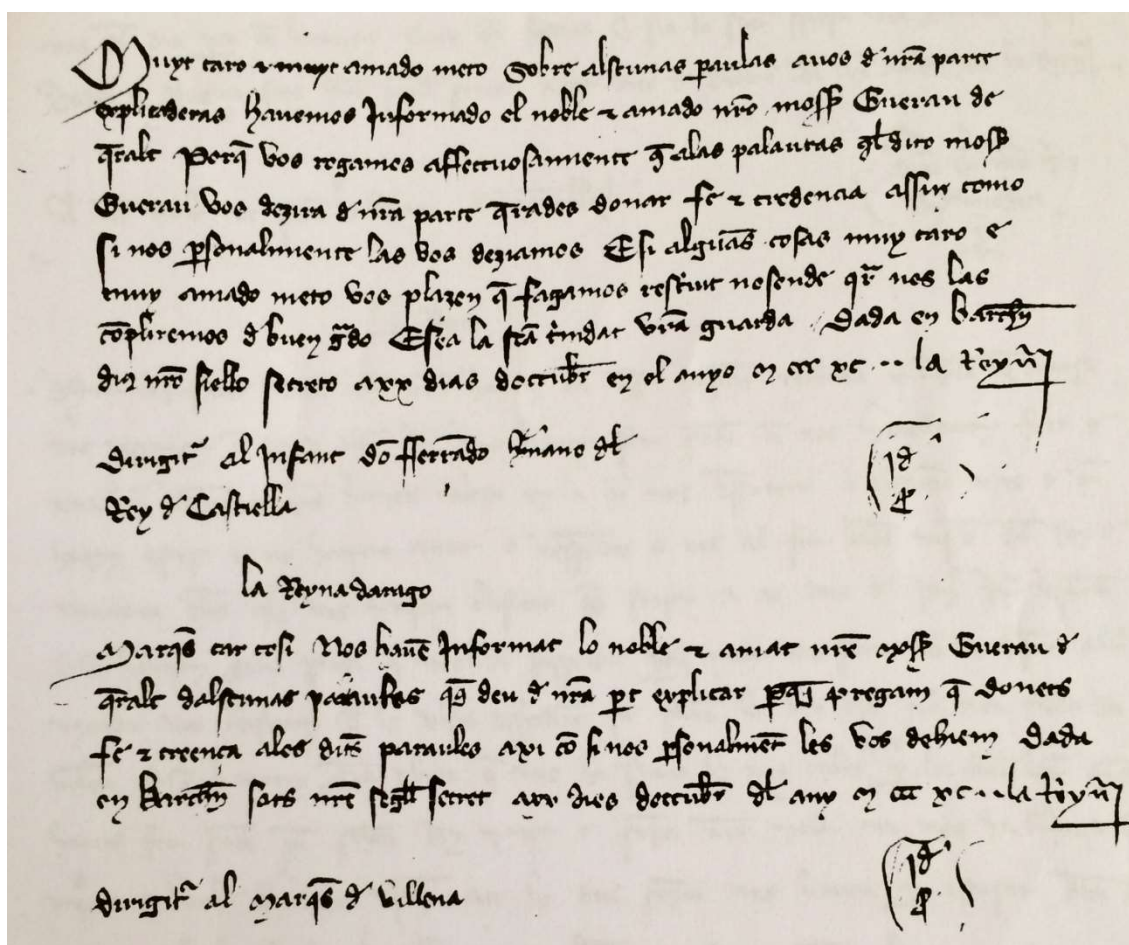 Muyt caro & muyt amado nieto Sobre algunas paraulas a vos d nr̃a parte
explicaderas havemos Informado el noble & amado nr̃o mossẽ Guerau de
q̃ralt Porq̃ vos rogamos affectuosament q̃ alas palauras q̃l dito mossẽ
Guerau vos dezira d nr̃a parte q̃rades donar fe & credencia assin como
si nos p̃sonalmente las vos deziamos E si algunas cosas muy caro e
muy amado nieto vos plazen q̃ fagamos rescriuit nosende qr̃ nos las
cõpliremos d buen g̃do E sea la sc̃a t̃nidat vr̃a guarda Dada en barch̃n
dius nr̃o siello secreto a xx dias doctubr̃ en el anyo M ccc xc .. la Reyña
Dirigit̃ al Infant dõ fferrãdo h̃mano dl
Rey d Castiella
la Reyna darago
Marq̃s car cosi Nos hauẽ Informat lo noble & amat nr̃e mossẽ Guerau d
q̃ralt dalscunas paraules q̃us deu d nr̃a p̃t explicar p̃q̃ pregam q̃ donets
fe & creença ales dits paraules axi cõ si nos p̃sonalmẽt les vos dehiem Dada
en barch̃n sots nr̃e segell secret a xx dies doctubr̃ dl any M ccc xc .. la Reyña
dirigit̃ al Marq̃s d Villena